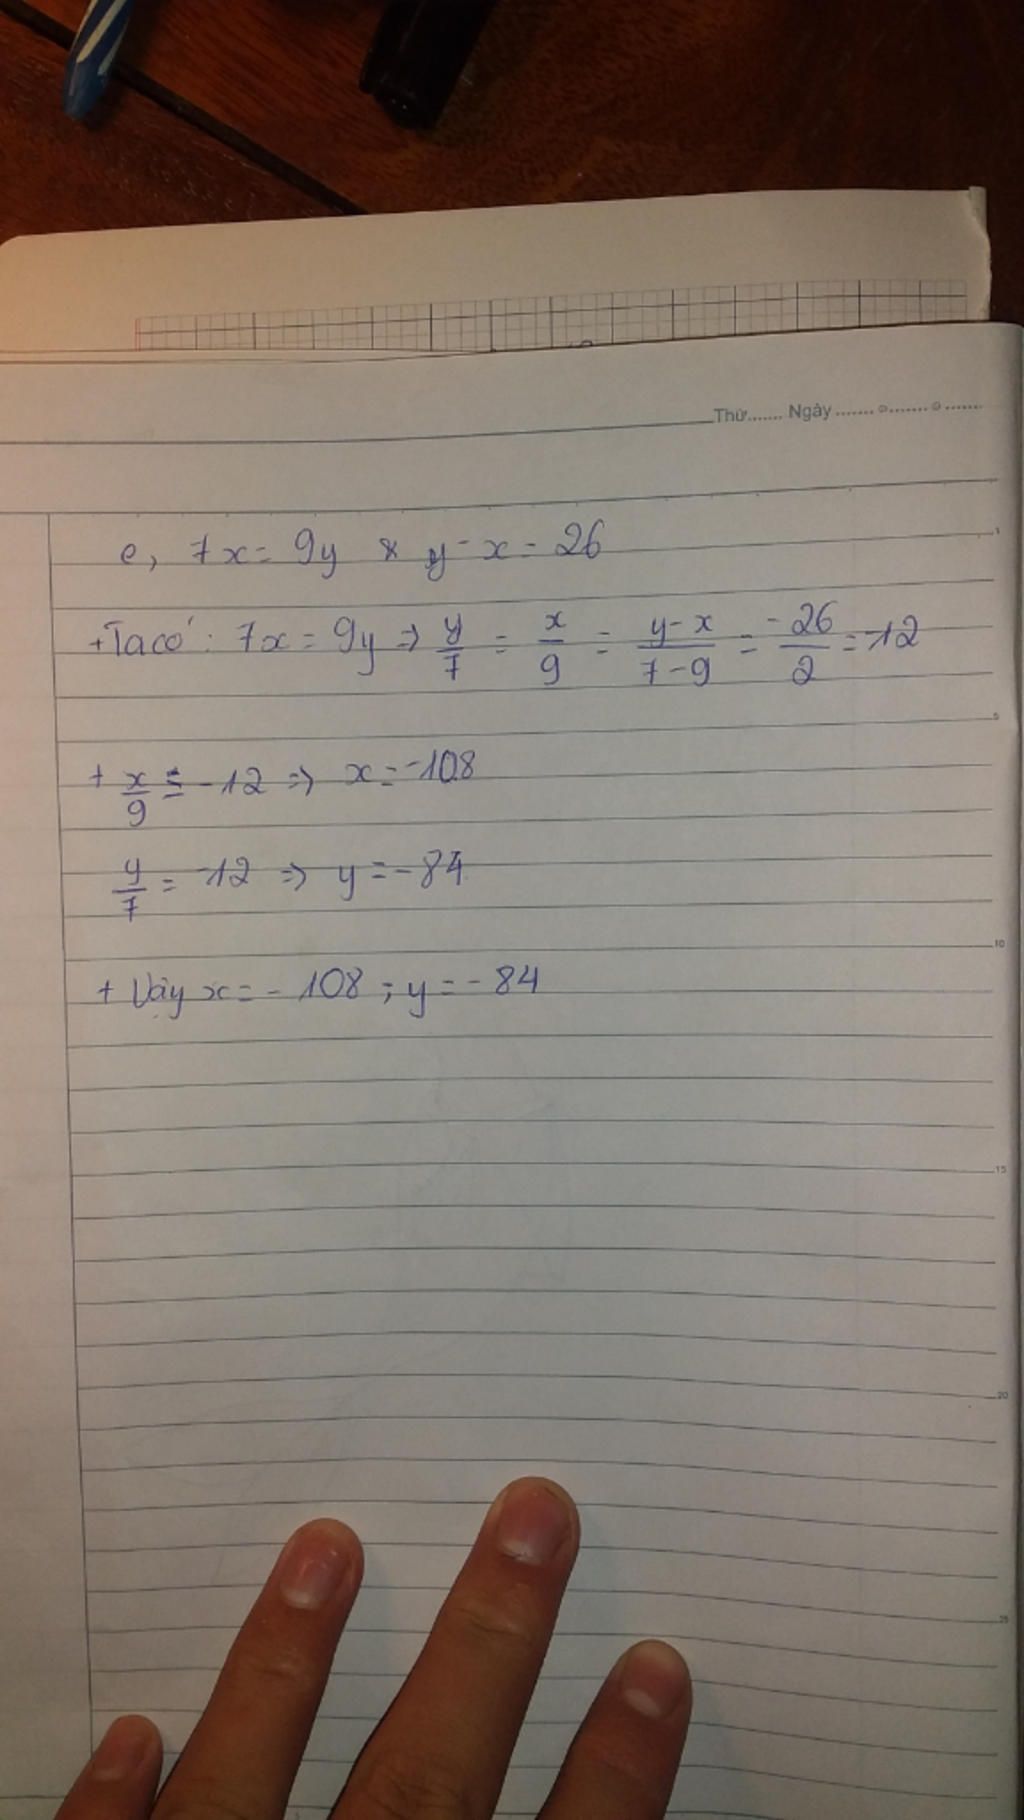 Thứ....... Ngày ....... ....... .......
e, 7x = 9y & y - x = 26
+Ta có: 7x = 9y => y/7 = x/9 = y-x/7-9 = -26/2 = -12
+ x/9 = -12 => x = -108
y/7 = -12 => y = -84
+ Vậy x = -108 ; y = -84
1
5
10
15
20
25